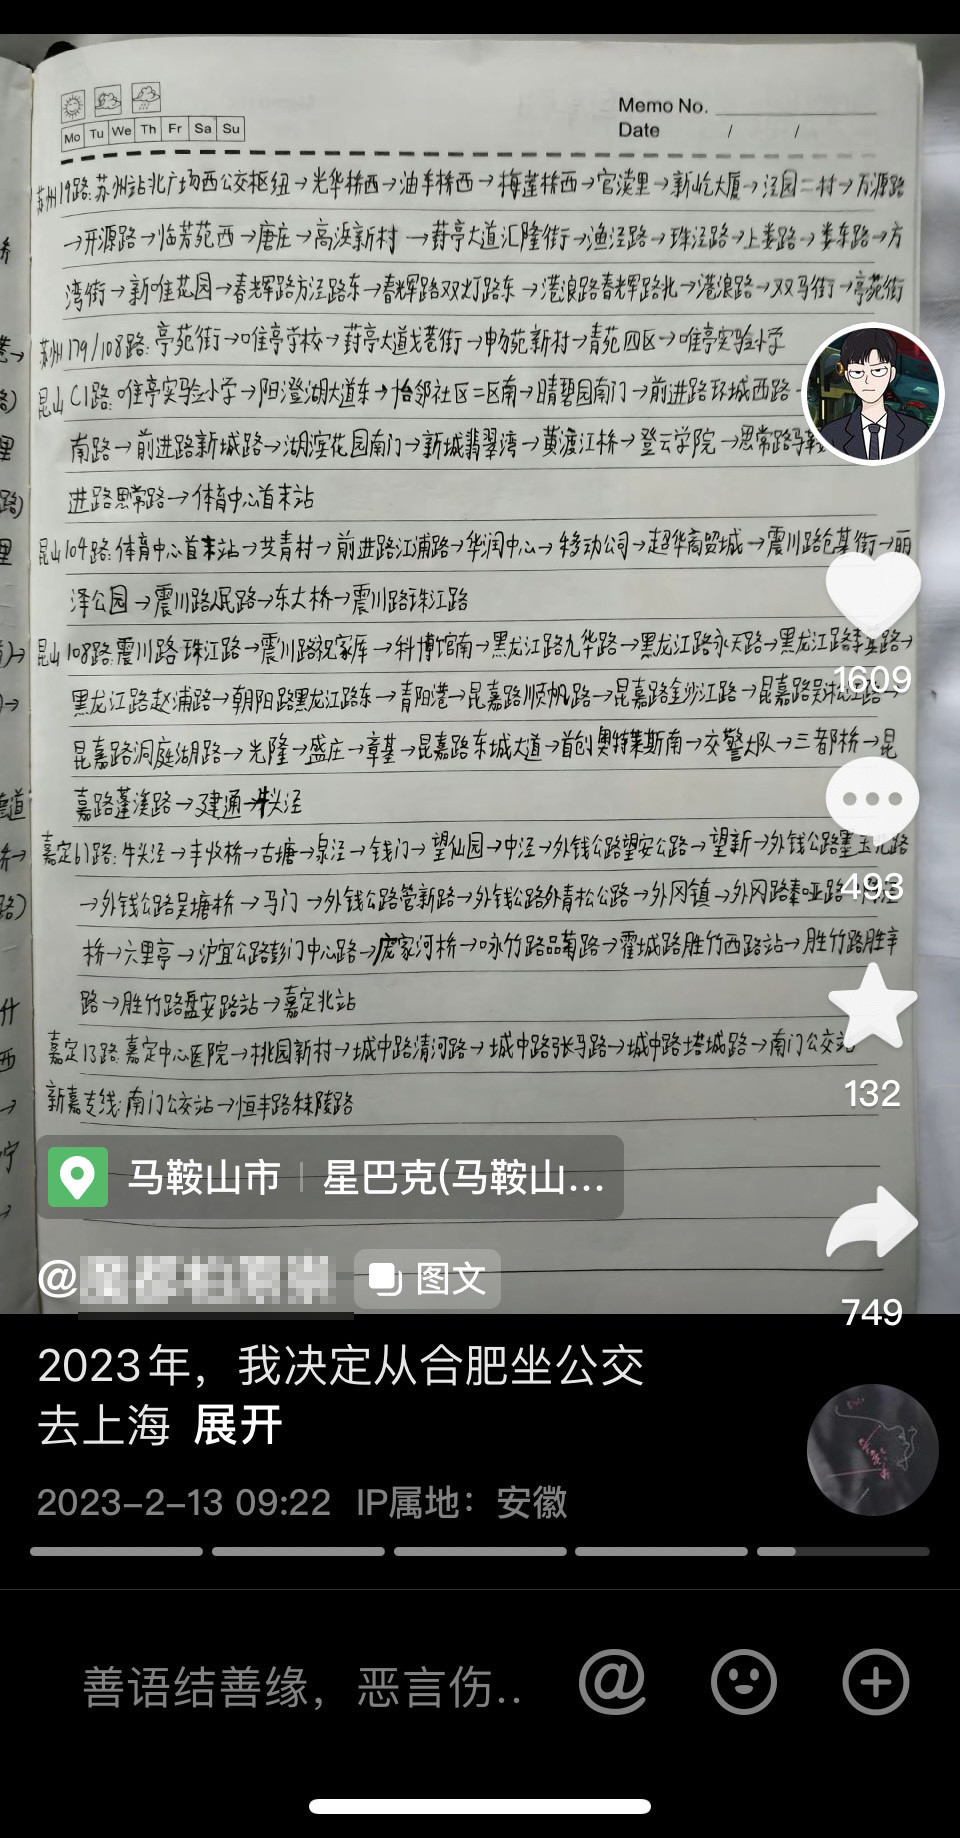 Memo No.
Date / /
Mo Tu We Th Fr Sa Su
苏州19路:苏州站北广场西公交枢纽→光华桥西→油车桥西→梅莲桥西→官渎里→新屹大厦→泾园二村→万源路
→开源路→临芳苑西→唐庄→高浜新村→葑亭大道汇隆街→渔泾路→珠泾路→上娄路→娄东路→方
湾街→新唯花园→春辉路方泾路东→春辉路双灯路东→港浪路春辉路北→港浪路→双马街→亭苑街
苏州179/108路:亭苑街→唯亭学校→葑亭大道戈巷街→畅苑新村→青苑四区→唯亭实验小学
昆山C1路:唯亭实验小学→阳澄湖大道东→怡邻社区二区南→晴碧园南门→前进路环城西路
南路→前进路新城路→湖滨花园南门→新城翡翠湾→黄渡江桥→登云学院→思常路马鞍
进路思常路→体育中心首末站
昆山104路:体育中心首末站→共青村→前进路江浦路→华润中心→移动公司→超华商贸城→震川路仓基街→丽
泽公园→震川路人民路→东大桥→震川路珠江路
昆山108路:震川路珠江路→震川路祝家厍→科博馆南→黑龙江路九华路→黑龙江路永天路→黑龙江路→
黑龙江路赵浦路→朝阳路黑龙江路东→青阳港→昆嘉路顺帆路→昆嘉路金沙江路→昆嘉路吴淞江路→
昆嘉路洞庭湖路→光隆→盛庄→章基→昆嘉路东城大道→首创奥特莱斯南→交警大队→三都桥→昆
嘉路蓬溪路→建通→牛头泾
嘉定61路:牛头泾→丰收桥→古塘→泉泾→钱门→望仙园→中泾→外钱公路望安公路→望新→外钱公路墨玉北路
→外钱公路吴塘桥→马门→外钱公路管新路→外钱公路外青松公路→外冈镇→外冈路秦哑路→
桥→六里亭→沪宜公路彭门中心路→庞家河桥→咏竹路品菊路→霍城路胜竹西路站→胜竹路胜辛
路→胜竹路盘安路站→嘉定北站
嘉定13路:嘉定中心医院→桃园新村→城中路清河路→城中路张马路→城中路塔城路→南门公交站
新嘉专线:南门公交站→恒丰路秣陵路
1609
493
132
749
马鞍山市 | 星巴克(马鞍山...
@
图文
2023年，我决定从合肥坐公交
去上海 展开
2023-2-13 09:22 IP属地：安徽
善语结善缘，恶言伤..